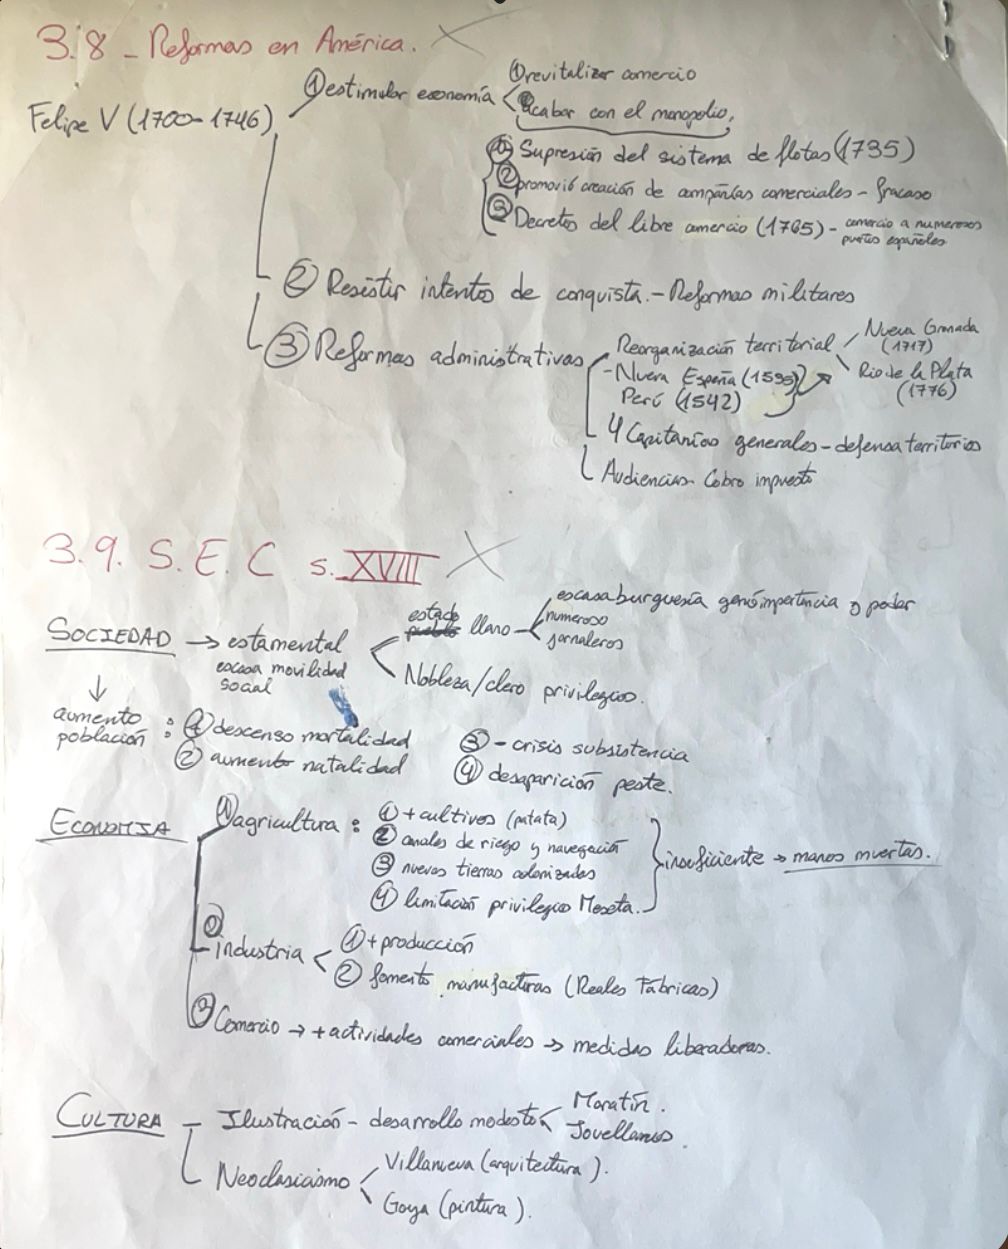 3.8 - Reformas en América.
Felipe V (1700-1746)
① estimular economía
① revitalizar comercio
② acabar con el monopolio,
① Supresión del sistema de flotas (1735)
② promovió creación de compañías comerciales - fracaso
③ Decretos del libre comercio (1765) - comercio a numerosos
puertos españoles
② Resistir intentos de conquista. - Reformas militares
③ Reformas administrativas
Reorganización territorial
Nueva Granada
(1717)
Rio de la Plata
(1776)
- Nueva España (1535)
Perú (1542)
4 Capitanías generales - defensa territorios
Audiencias - Cobro impuesto
3.9. S. E. C s. XVIII
SOCIEDAD → estamental
escasa movilidad
social
estado llano
escasa burguesía ganó importancia y poder
numeroso
jornaleros
Nobleza/clero privilegios.
↓
aumento
población :
① descenso mortalidad
② aumento natalidad
③ - crisis subsistencia
④ desaparición peste.
ECONOMIA
① agricultura :
① + cultivos (patata)
② canales de riego y navegación
③ nuevas tierras colonizadas
④ limitación privilegios Meseta.
insuficiente → manos muertas.
② industria
① + producción
② fomento manufacturas (Reales Fábricas)
③ Comercio → + actividades comerciales → medidas liberadoras.
CULTURA
- Ilustración - desarrollo modesto
Moratín.
Jovellanos.
Neoclasicismo
Villanueva (arquitectura).
Goya (pintura).